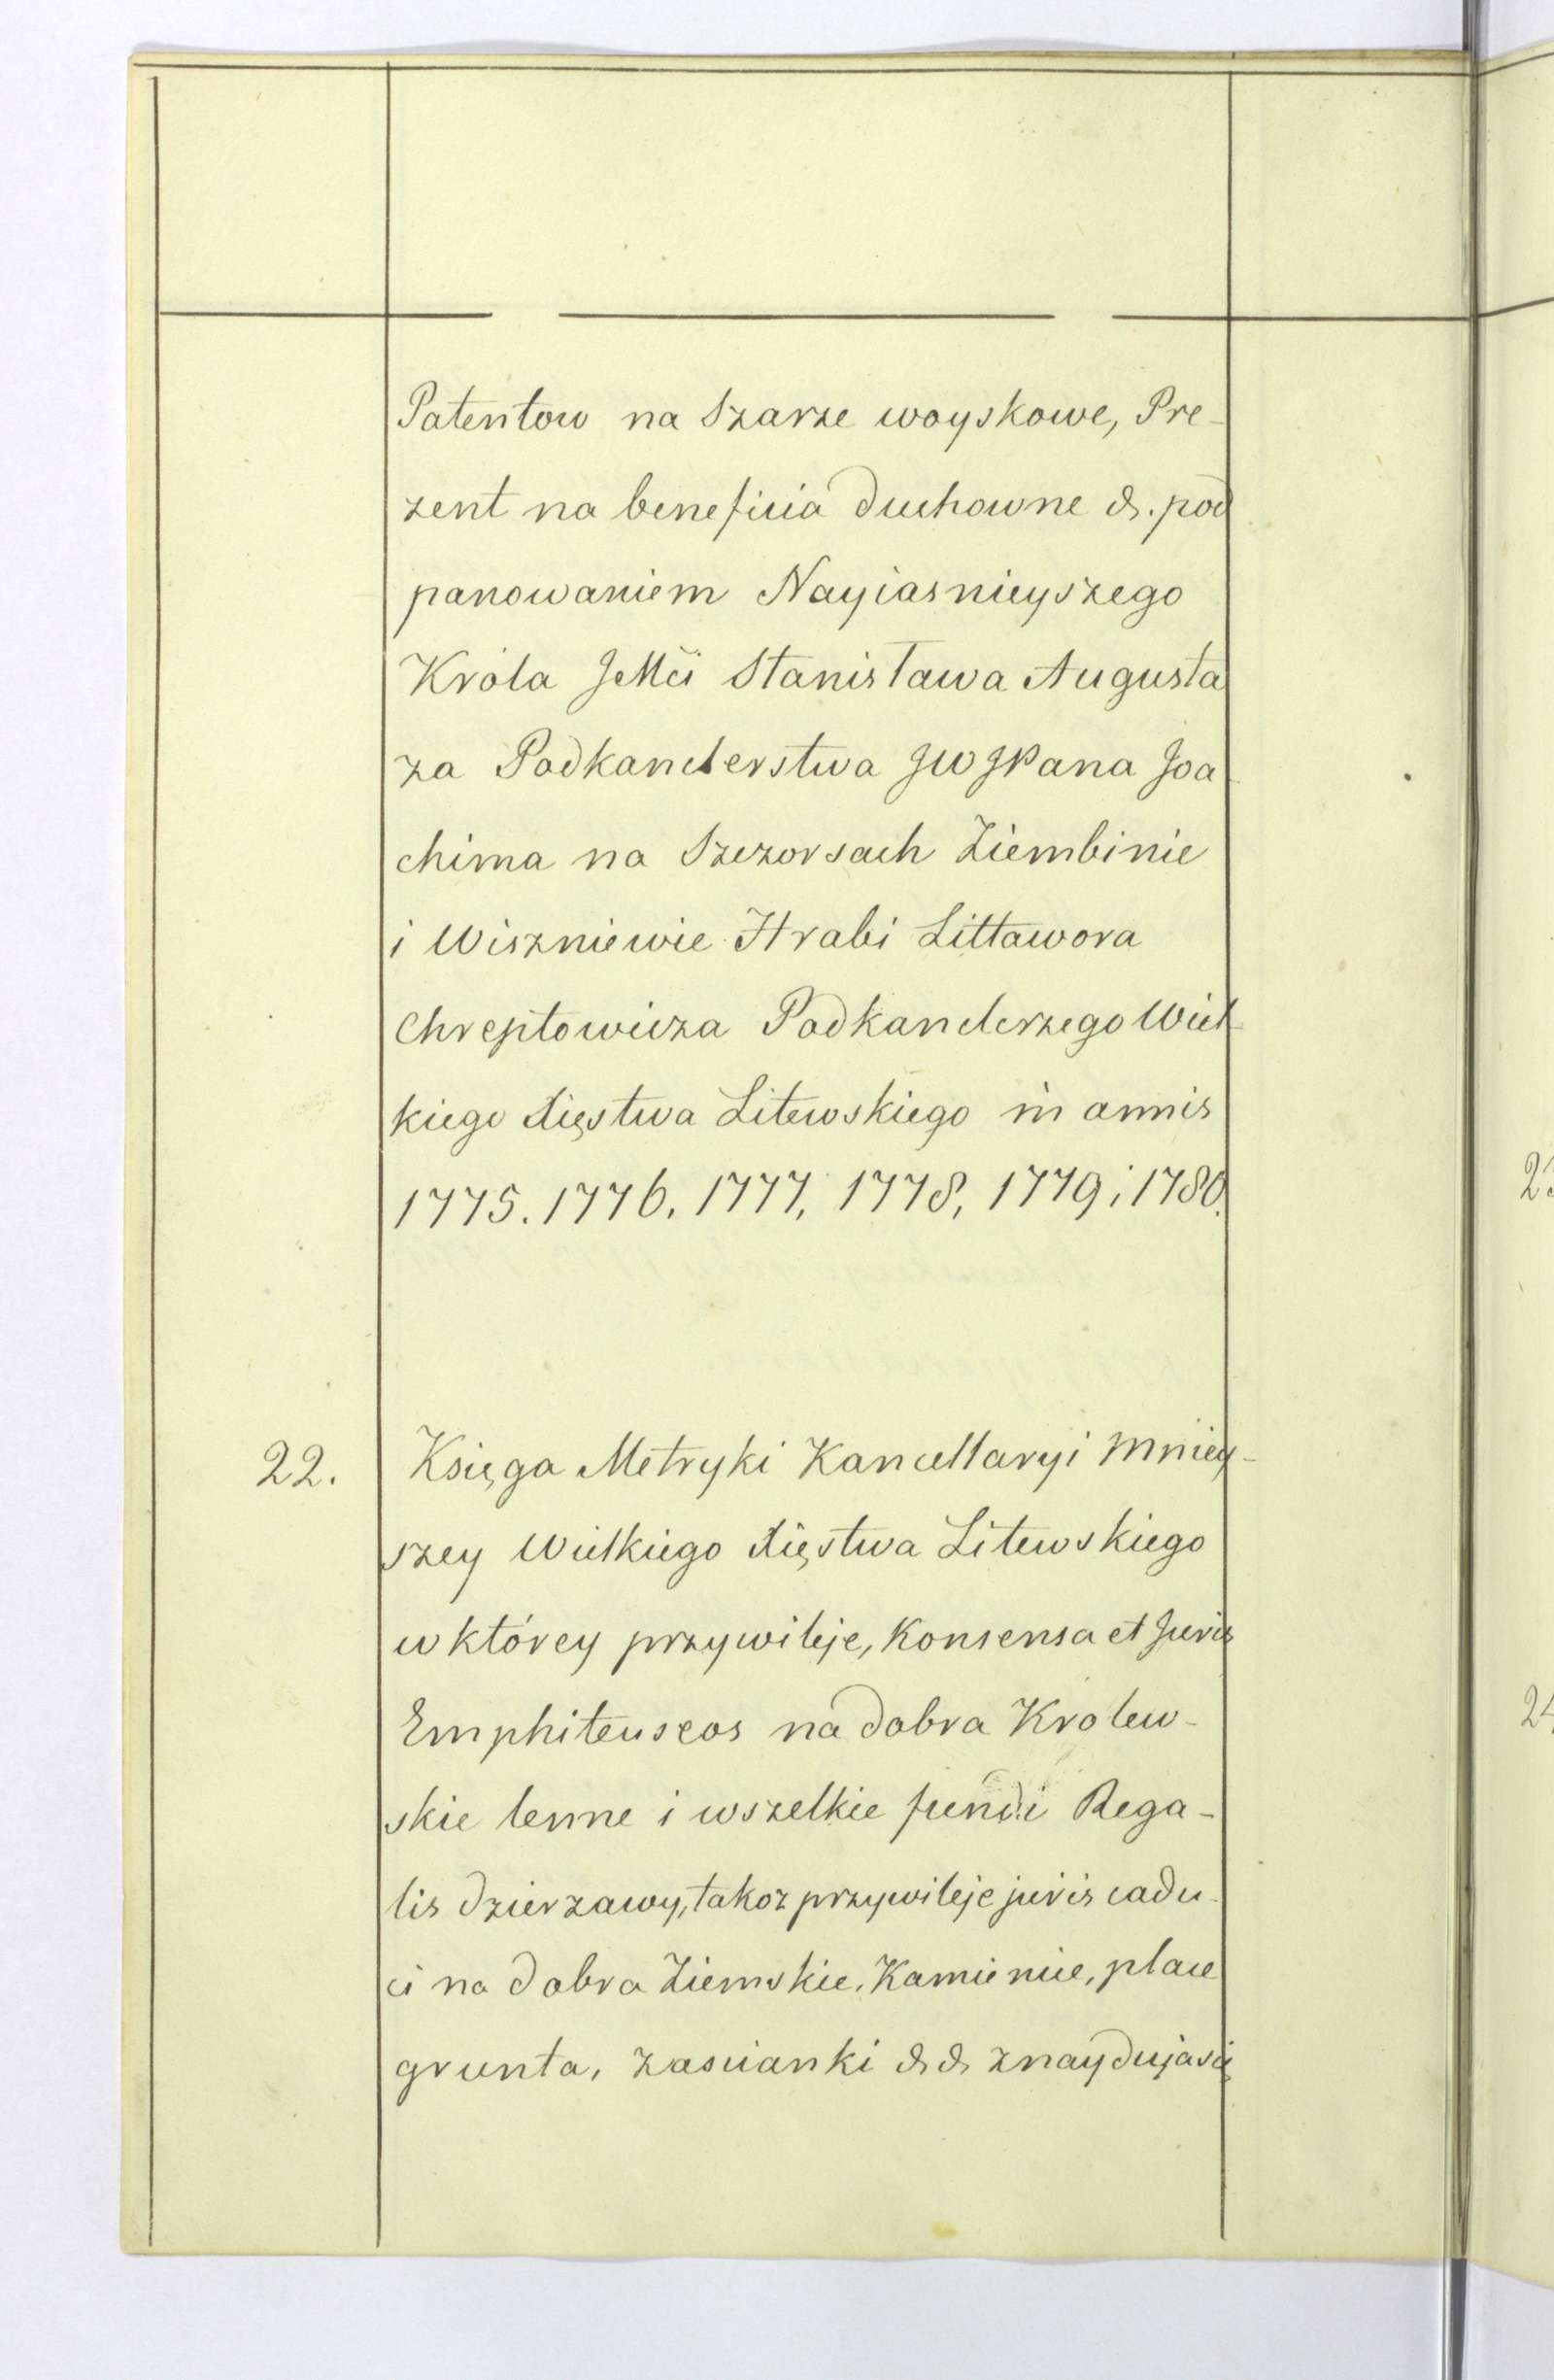 Patentow na Szarze woyskowe, Pre-
zent na beneficia duchowne &. pod
panowaniem Nayiasnieyszego
Króla JMći Stanisława Augusta
za Podkanclerstwa JW JPana Joa-
chima na Szczorsach Ziembinie
i Wiszniewie Hrabi Littawora
Chreptowicza Podkanclerzego Wiel-
kiego Xięstwa Litewskiego in annis
1775. 1776. 1777, 1778, 1779 i 1780.
22. Księga Metryki Kancellaryi Mniey-
szey Wielkiego Xięstwa Litewskiego
w którey przywileje, Konsensa et Juris
Emphiteuseos na dobra Krolew-
skie lenne i wszelkie fundi Rega-
lis dzierzawy, takoz przywileje juris cadu-
ci na dobra Ziemskie, Kamienice, place
grunta, zascianki & & znaydują się